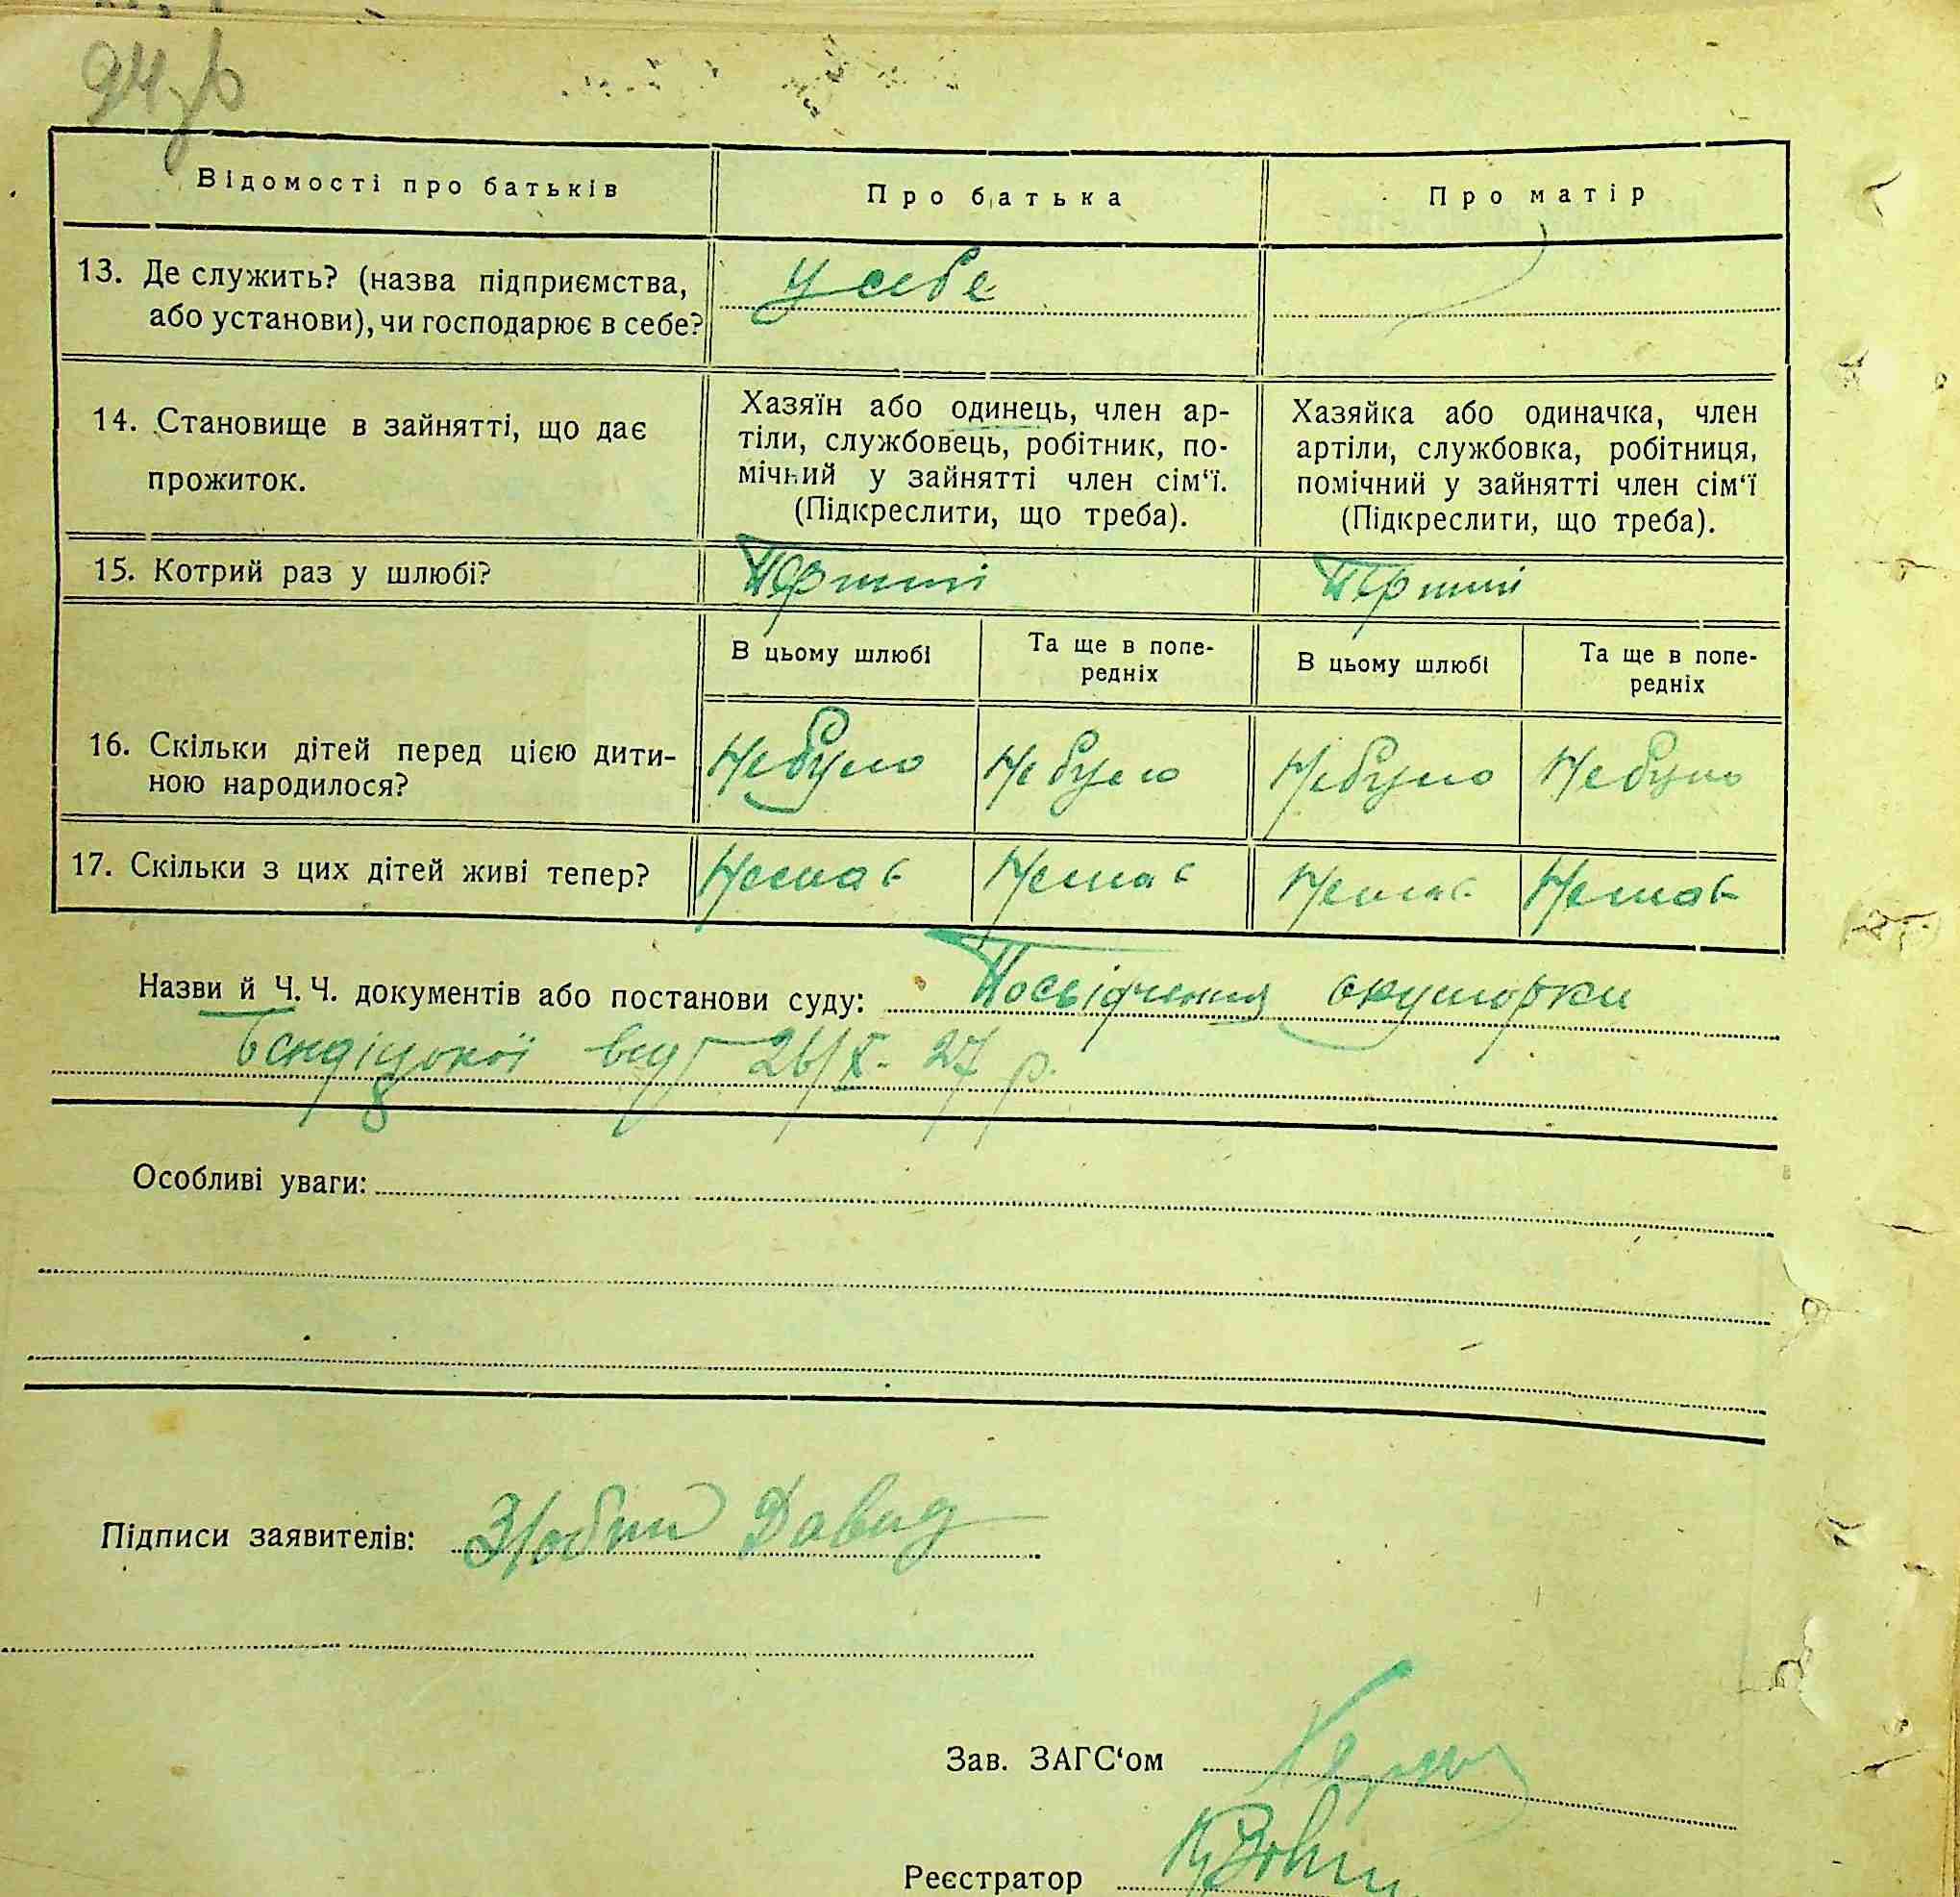 94зв
Відомості про батьків
Про батька
Про матір
13. Де служить? (назва підприємства,
або установи), чи господарює в себе?
у себе
14. Становище в зайнятті, що дає
прожиток.
Хазяїн або одинець, член ар-
тіли, службовець, робітник, по-
мічний у зайнятті член сім‘ї.
(Підкреслити, що треба).
Хазяйка або одиначка, член
артіли, службовка, робітниця,
помічний у зайнятті член сім‘ї
(Підкреслити, що треба).
15. Котрий раз у шлюбі?
Перший
Перший
В цьому шлюбі
Та ще в попе-
редніх
В цьому шлюбі
Та ще в попе-
редніх
16. Скільки дітей перед цією дити-
ною народилося?
Небуло
Небуло
Небуло
Небуло
17. Скільки з цих дітей живі тепер?
Немає
Немає
Немає
Немає
Назви й Ч. Ч. документів або постанови суду: Посвідчення акушорки
від 26/X-27 р.
Особливі уваги:
Підписи заявителів: Давид
Зав. ЗАГС‘ом
Реєстратор